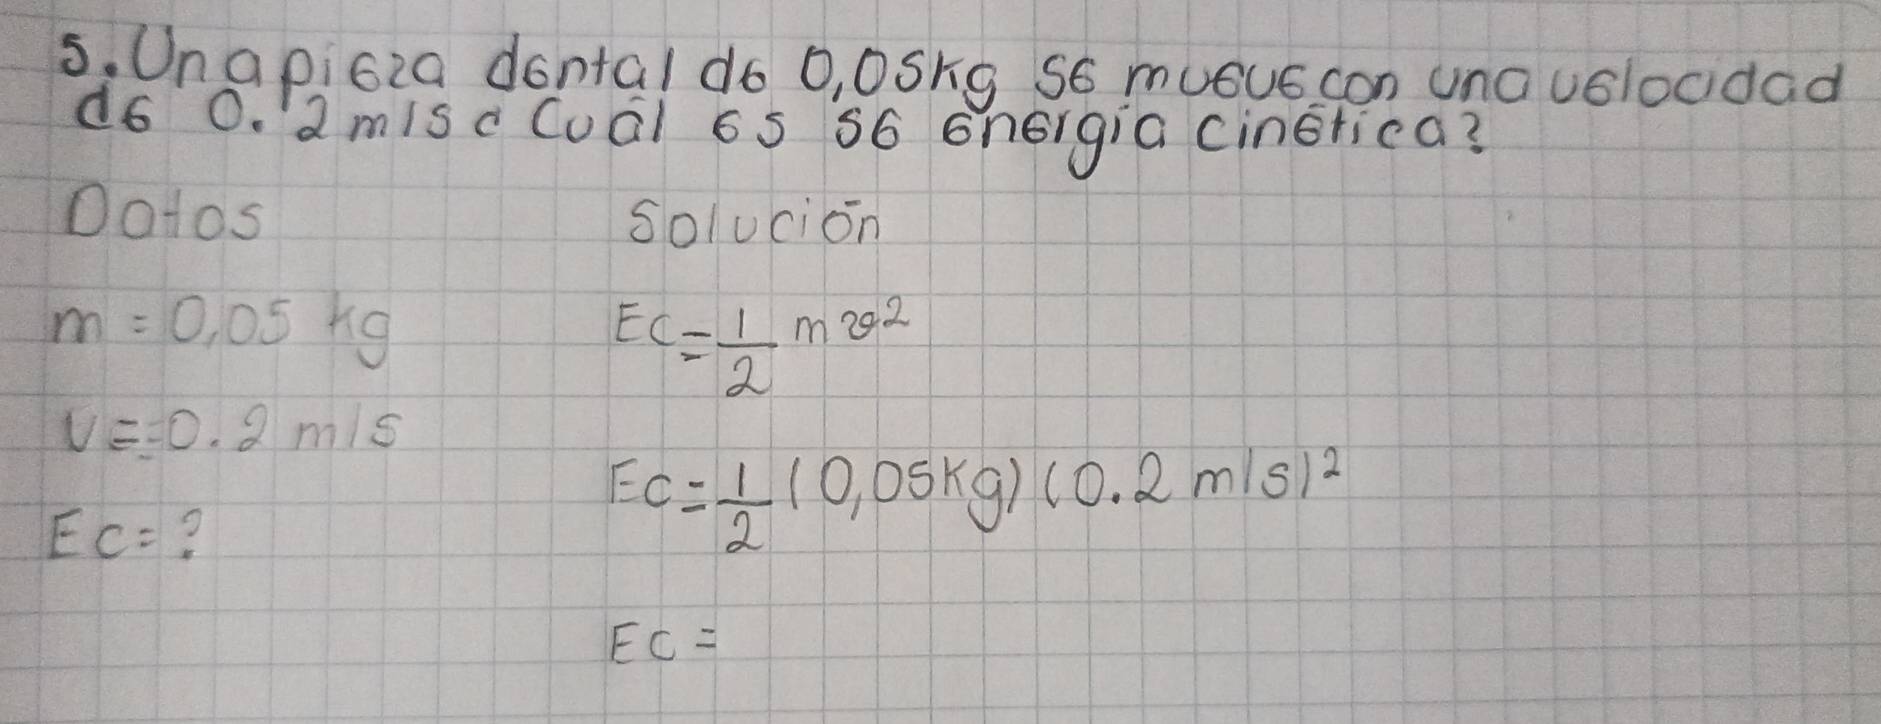 5. Una pieza dental de 0,05kg se mueve con una velocidad
de 0.2 m/s ¿Cuál es se energía cinética?
Datos
Solución
m = 0,05 kg
Ec = 1/2 m v²
V = 0.2 m/s
Ec = 1/2 (0,05kg) (0.2 m/s)²
Ec = ?
Ec =